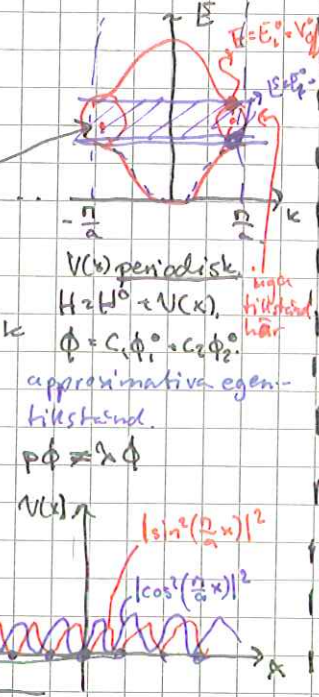 E
E=E₁⁰+V₉⁰
k
-π/a
π/a
V(x) periodisk.
H=H⁰+V(x).
inga
tillstånd
här
k
ϕ=C₁ϕ₁⁰+C₂ϕ₂⁰.
approximativa egen-
tillstånd.
pϕ≠λϕ
V(x)
|sin²(π/a x)|²
|cos²(π/a x)|²
x